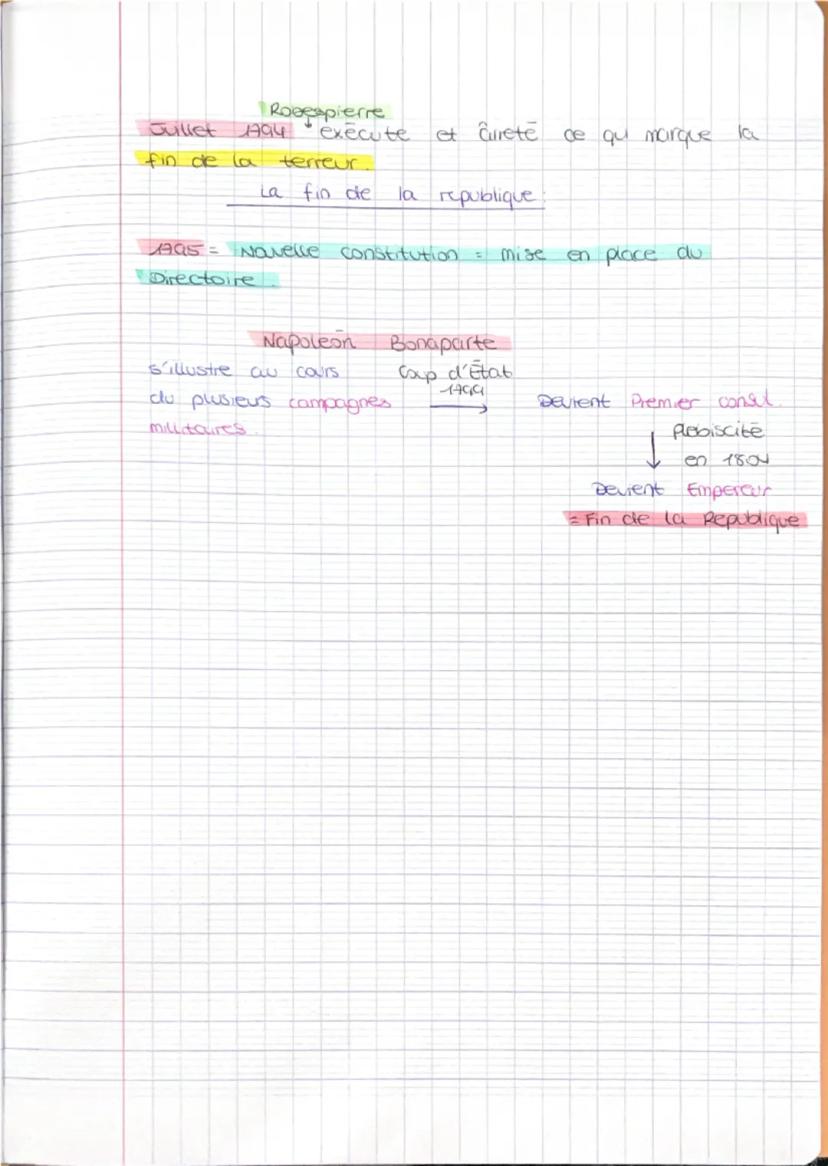 Robespierre
Juillet 1794 exécute et âireté ce qui marque la
fin de la terreur.
La fin de la republique :
1795 = Nouvelle constitution = mise en place du
Directoire.
Napoléon Bonaparte
s'illustre au cours Coup d'État
du plusieurs campagnes 1799 Devient Premier consul.
militaires. plébiscité
en 1804
Devient Empereur
= Fin de la Republique